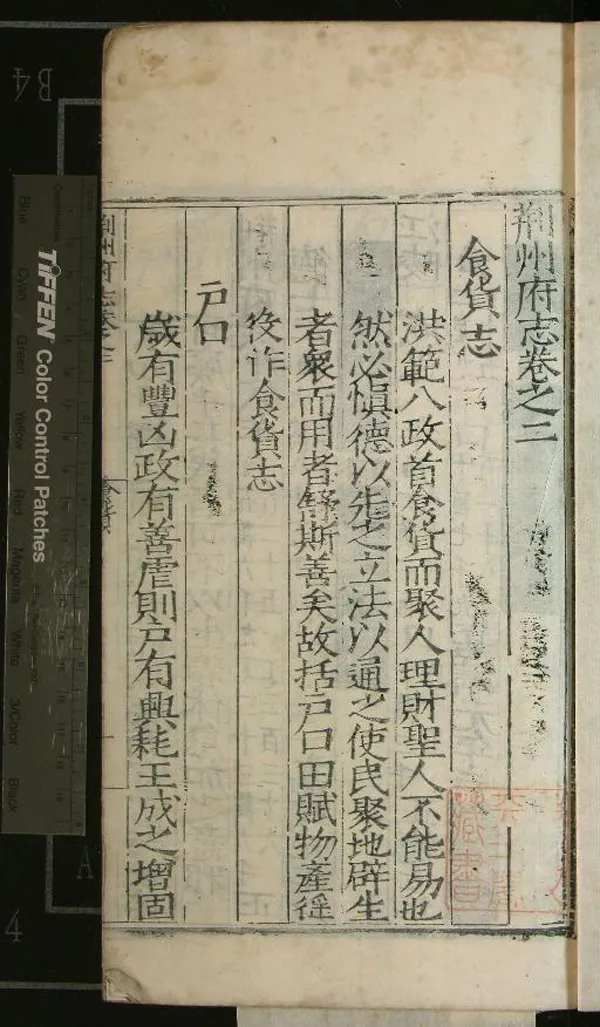 荆州府志卷之三
食貨志
洪範八政首食貨而聚人理財聖人不能易也
然必愼德以先之立法以通之使民聚地辟生
者衆而用者舒斯善矣故括戸口田賦物產徭
役作食貨志
戸口
歲有豐凶政有善虐則戸有興耗王成之增固
荆州府志卷之三
食貨
TIFFEN Color Control Patches
Blue Cyan Green Yellow Red Magenta White 3/Color Black
B4
A
4